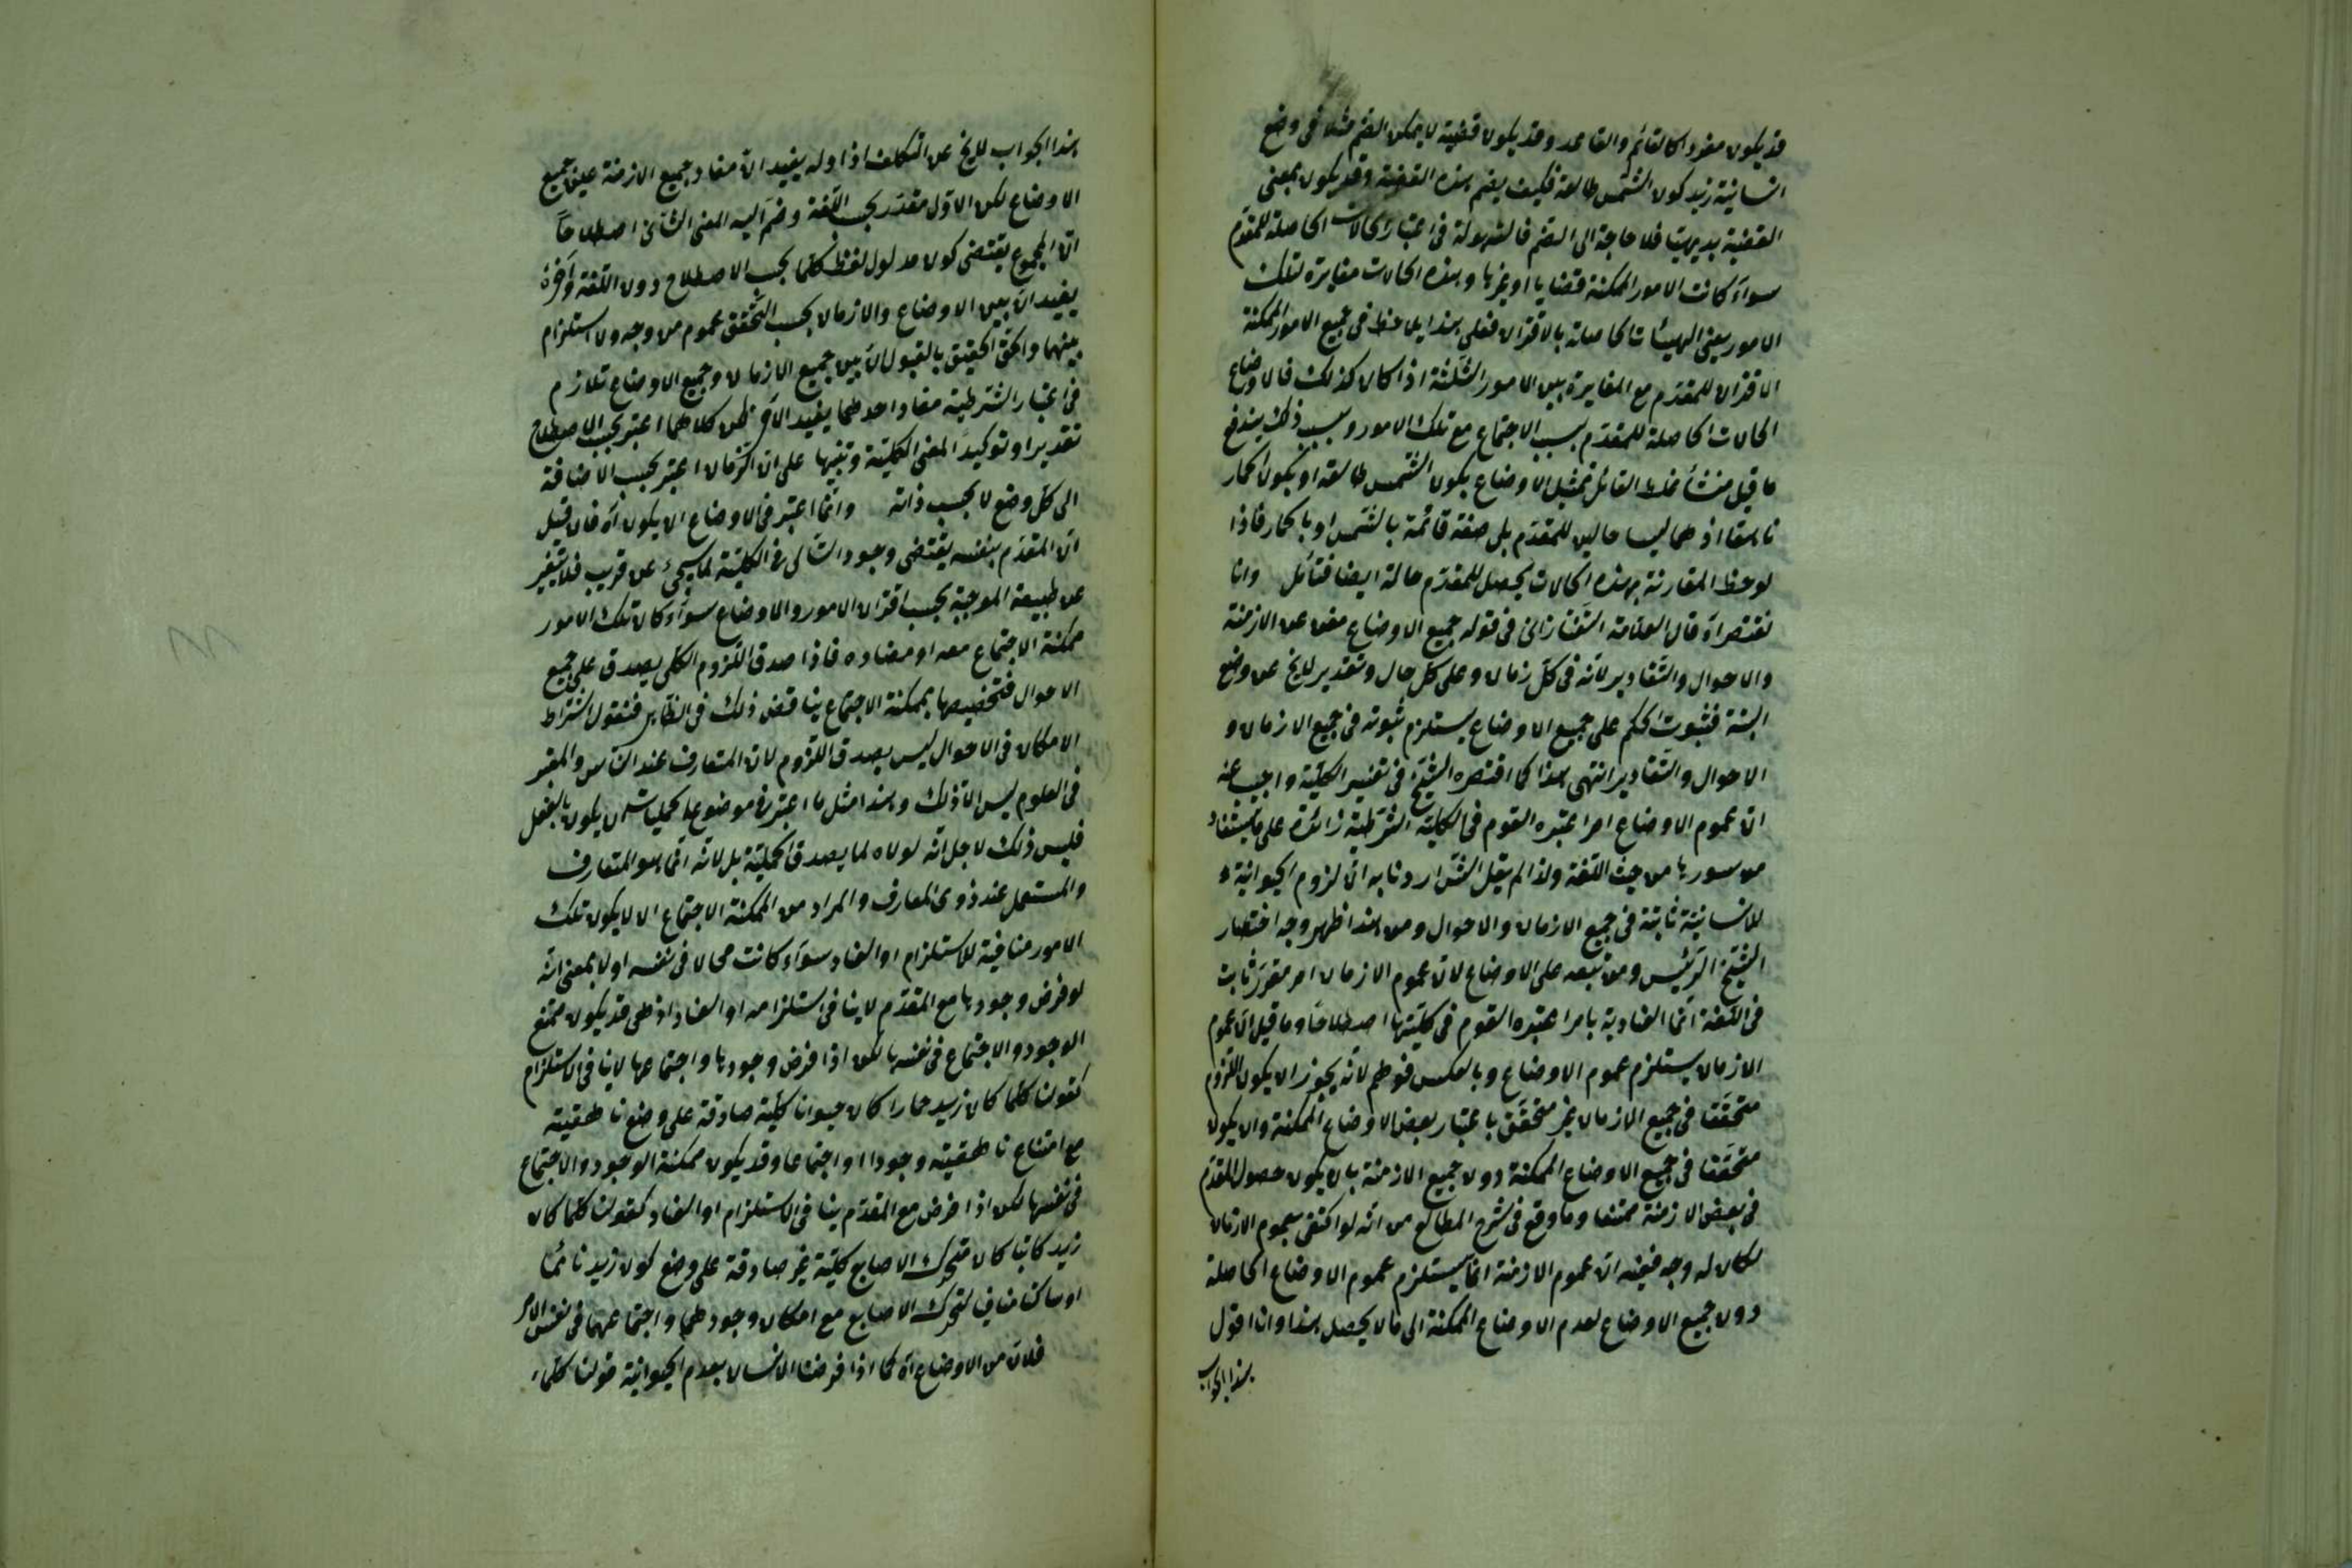 قد يكون مفردا كالقائم والقاعد وقد يكون قضية لا يمكن الضم مثلا في وضع
انسانية زيد كون الشمس طالعة فكيف يضم هذه القضية وقد يكون بمعنى
القضية بديهيتا فلا حاجة الى الضم فالسهولة في اعتبار الحالات الحاصلة للمقدم
سواء كانت الامور الممكنة قضايا او غيرها وهذه الحالات مغايرة لتلك
الامور يعنى الهيئات الحاصلة بالاقتران فعلى هذا يلاحظ في جميع الامور الممكنة
الاقتران للمقدم مع المغايرة بين الامور الثلثة اذا كان كذلك فالاوضاع
الحالات الحاصلة للمقدم بسبب الاجتماع مع تلك الامور وبسبب ذلك يندفع
ما قيل منشأ غلط القائل تمثيل الاوضاع بكون الشمس طالعة او بكون الحمار
ناهقا اذ هما ليسا حالين للمقدم بل صفة قائمة بالشمس او بالحمار فاذا
لوحظ المقارنة بهذه الحالات يحصل للمقدم حالة ايضا فتأمل وانا
نقتصر اه قال العلامة التفتازانى في قوله جميع الاوضاع مغن عن الازمنة
والاحوال والتقادير لانه في كل زمان وعلى كل حال وتقدير لايخ عن وضع
البتة فثبوت الحكم على جميع الاوضاع يستلزم ثبوته في جميع الازمان و
الاحوال والتقادير انتهى هذا كما اقتصره الشيخ في تفسير الكلية واجيب عنه
ان عموم الاوضاع امر اعتبره القوم في الكلية الشرطية زائدة على ما يستفاد
من سورها من حيث اللغة ولذا لم يقل الش اردنا به ان لزوم الحيوانية
للانسانية ثابتة في جميع الازمان والاحوال ومن هذا ظهر وجه اختصار
الشيخ الرئيس ومن تبعه على الاوضاع لان عموم الازمان امر مقرر ثابت
في اللغة انما العنادية بامر اعتبره القوم في كليتها اصطلاحا وما قيل ان عموم
الازمان يستلزم عموم الاوضاع وبالعكس فوهم لانه يجوز ان يكون اللزوم
متحققا في جميع الازمان غير متحقق باعتبار بعض الاوضاع الممكنة وان يكون
متحققا في جميع الاوضاع الممكنة دون جميع الازمنة بان يكون حصول المقدم
في بعض الازمنة ممتنعا وما وقع في شرح المطالع من انه لو اكتفى بعموم الازمان
لكان له وجه ففيه ان عموم الازمنة انما يستلزم عموم الاوضاع الحاصلة
دون جميع الاوضاع لعدم الاوضاع الممكنة الى مالا يحصل هذا وانا اقول
هذا الجواب
هذا الجواب لايخ عن التكلف اذ اوله يفيد ان مفاد جميع الازمنة عين جميع
الاوضاع لكن الاول مقدر بحسب اللغة وضم اليه المعنى الثانى اصطلاحا
ان المجموع يقتضى كون مدلول لفظ كلما بحسب الاصطلاح دون اللغة وآخره
يفيد ان بين الاوضاع والازمان بحسب التحقق عموم من وجه ولا استلزام
بينهما والحق الحقيق بالقبول ان بين جميع الازمان وجميع الاوضاع تلازم
في اعتبار الشرطية مفاد احدهما يفيد الآخر لكن كلاهما اعتبر بحسب الاصطلاح
تقديرا وتوكيدا لمعنى الكلية وتنبيها على ان الزمان اعتبر بحسب الاضافة
الى كل وضع لا بحسب ذاته وانما اعتبر في الاوضاع ان يكون اه فان قيل
ان المقدم بنفسه يقتضى وجود التالى في الكلية كما سيجئ عن قريب فلا يتغير
عن طبيعة الموجبة بحسب اقتران الامور والاوضاع سواء كان تلك الامور
ممكنة الاجتماع معه او مضاده فاذا صدق اللزوم الكلى يصدق على جميع
الاحوال فتخصيصها بممكنة الاجتماع يناقض ذلك في الظاهر فنقول اشتراط
الامكان في الاحوال ليس يصدق اللزوم لان المتعارف عند الناس والمعتبر
في العلوم ليس الا ذلك وهذا مثل ما اعتبر في موضوع الحمليات من يكون بالفعل
فليس ذلك لاجل انه لولاه لما يصدق الحملية بل لانه انما هو المتعارف
والمستعمل عند ذوى المعارف والمراد من الممكنة الاجتماع ان لا يكون تلك
الامور منافية للاستلزام او العناد سواء كانت محالا في نفسه اولا بمعنى انه
لو فرض وجودها مع المقدم لاينافى استلزامه او العناد اذ هى قد يكون ممتنع
الوجود والاجتماع في نفسها لكن اذا فرض وجودها واجتماعها لاينافى الاستلزام
كقولنا كلما كان زيد حمارا كان حيوانا كلية صادقة على وضع ناهقيته
مع امتناع ناهقيته وجودا او اجتماعا وقد يكون ممكنة الوجود والاجتماع
في نفسها لكن اذا فرض مع المقدم ينافى الاستلزام او العناد كقولنا كلما كان
زيد كاتبا كان متحرك الاصابع كلية غير صادقة على وضع كون زيد نائما
او ساكنا مناف لتحرك الاصابع مع امكان وجودهما واجتماعهما في نفس الامر
فلان من الاوضاع اه كما اذا فرضنا الانسان بعدم الحيوانية قولنا كلما